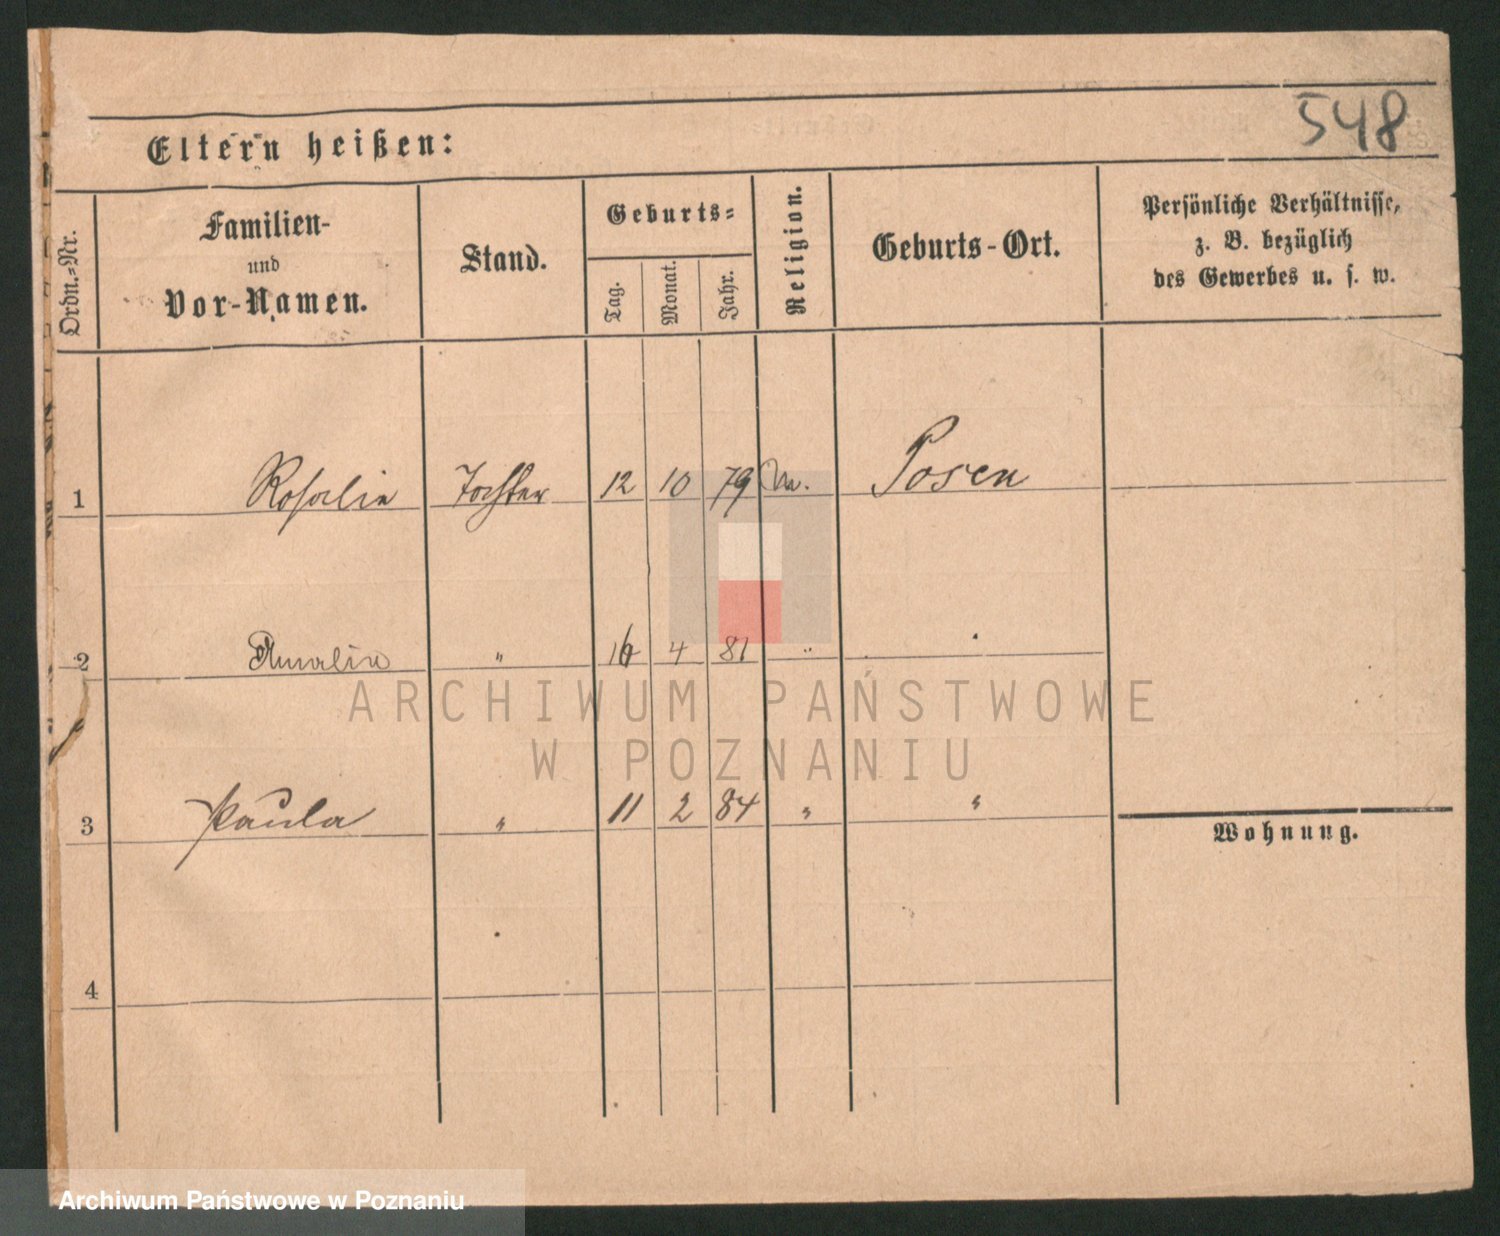 548
Eltern heißen:
Ordn.-Nr.
Familien-
und
Vor-Namen.
Stand.
Geburts-
Tag.
Monat.
Jahr.
Religion.
Geburts-Ort.
Persönliche Verhältnisse,
z. B. bezüglich
des Gewerbes u. s. w.
1 Rosalie Tochter 12 10 79 Posen
2 Amalie " 16 4 81 " "
ARCHIWUM PAŃSTWOWE
W POZNANIU
3 Paula " 11 2 84 " "
Wohnung.
4
Archiwum Państwowe w Poznaniu